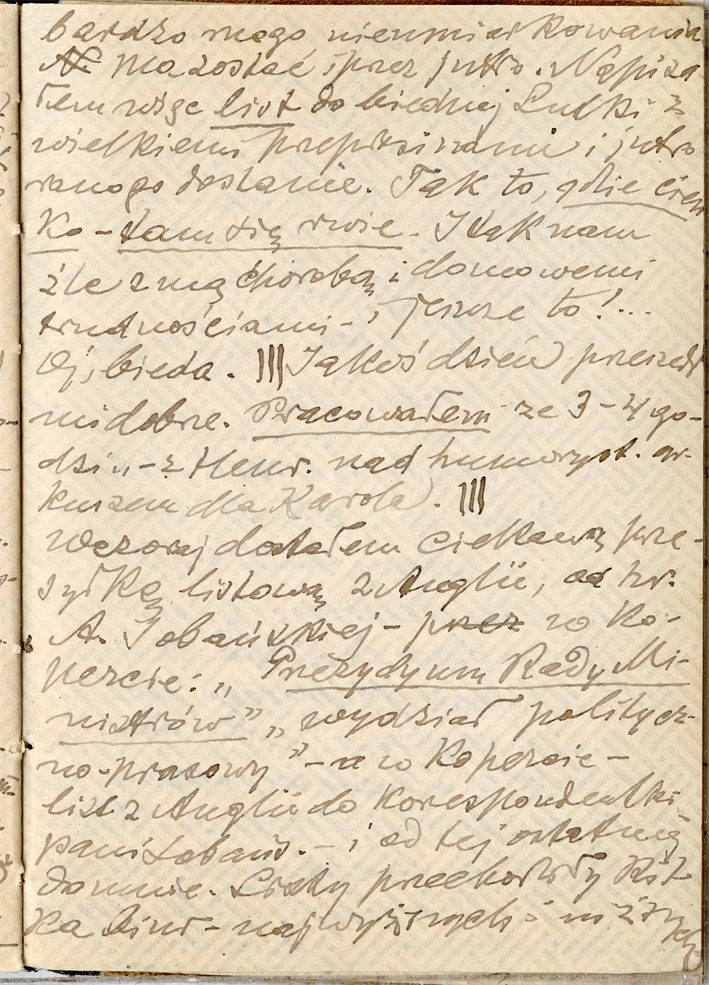 bardzo mego nienmiarkowania
N. ma zostać i przez jutro. Napisa-
łem więc list do biednej Lutki z
wielkiemi przeprosinami i jutro
rano go dostanie. Tak to, gdzie cien
ko - tam się rwie. I tak nam
źle z mą chorobą i domowemi
trudnościami - i jeszcze to!...
Oj, bieda. ||| Jakoś dzień przeszedł
mi dobrze. Pracowałem ze 3-4 go-
dzin - z Henr. nad humoryst. ar-
kuszem dla Karola. |||
Wczoraj dostałem ciekawą prze-
syłkę listową z Anglii, od hr.
A. Łobańskiej - przez w ko-
percie: „Prezydyum Rady Mi-
nistrów” „wydział politycz-
no-prasowy” - a w kopercie -
list z Anglii do korespondentki
pani Łobańs. - i od tej ostatniej
do mnie. Listy przechodziły kil-
ka biur - najwyższych i niższych